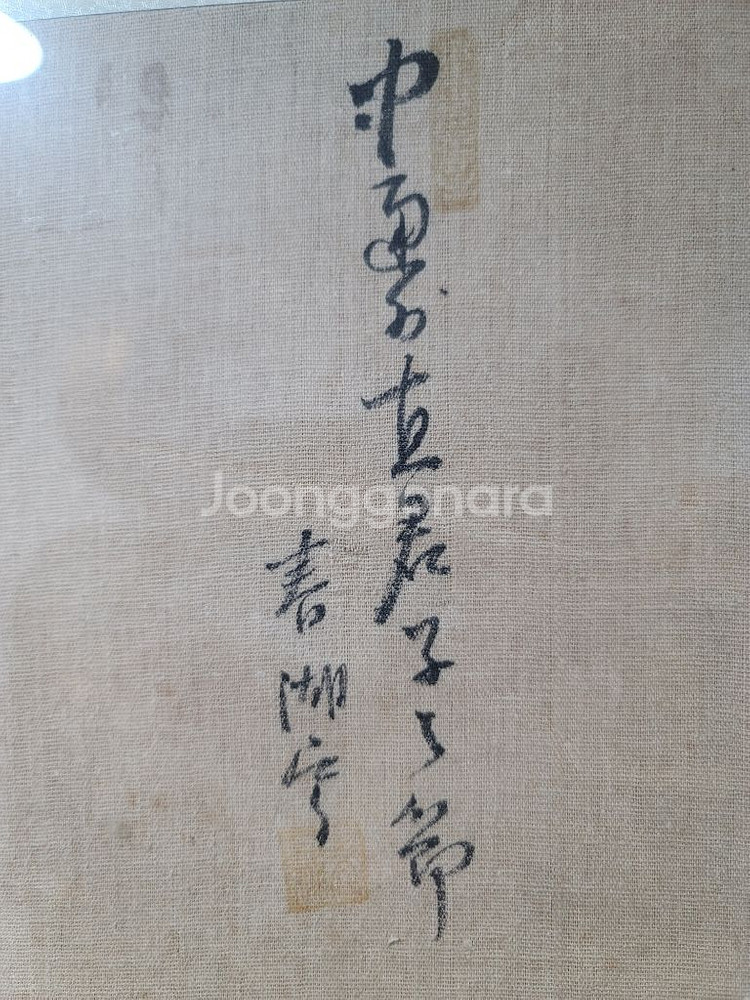 中通外直君子之節
春湖寫
Joonggonara